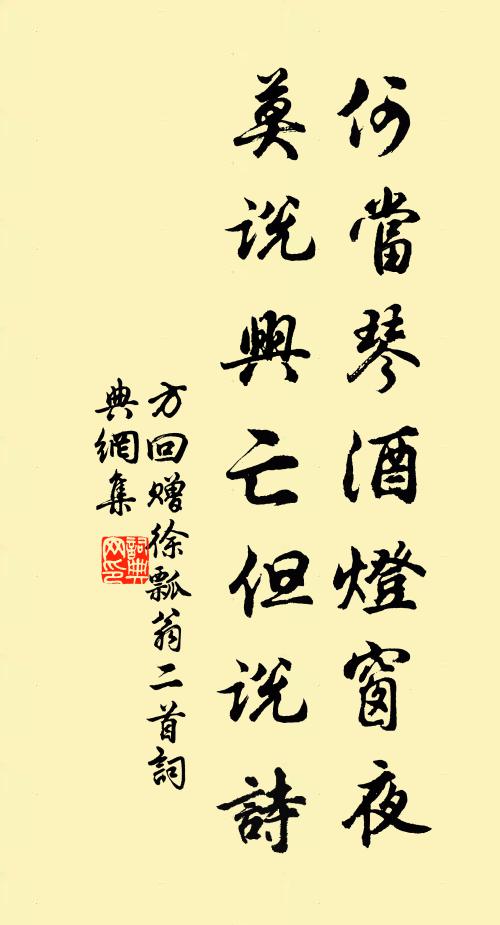 何當琴酒燈窗夜
莫說興亡但說詩
方回贈徐瓢翁二首詞
典網集
詞典网印